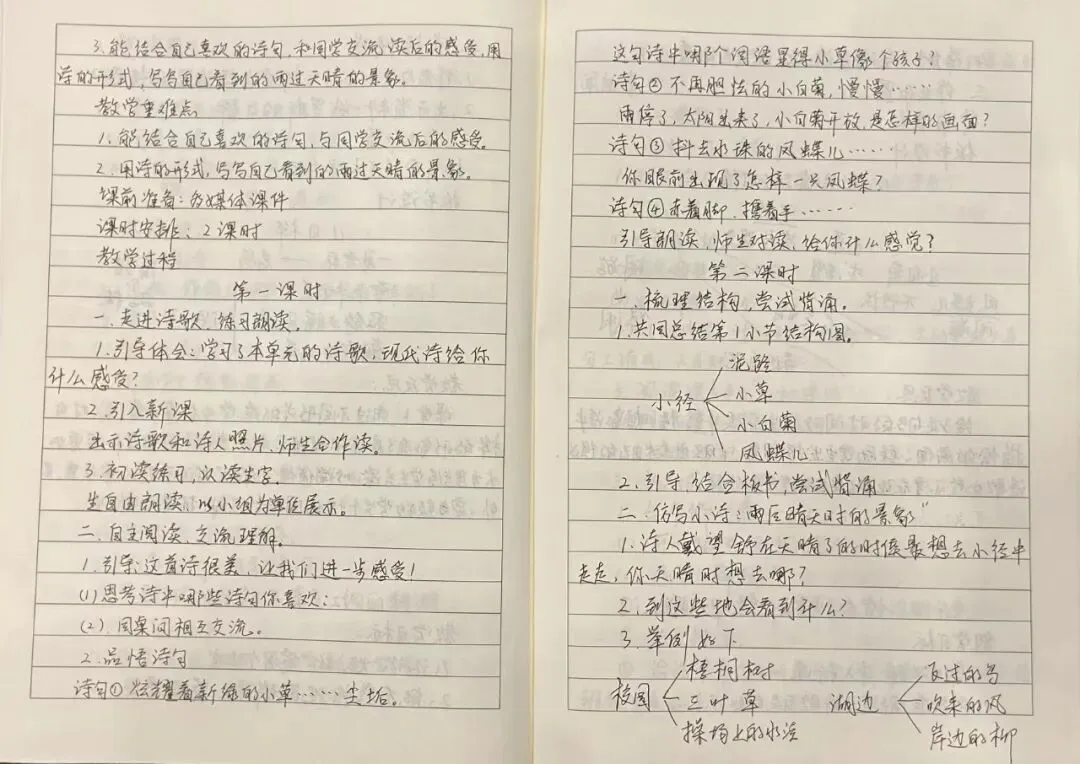 3.能结合自己喜欢的诗句,和同学交流读后的感受,用
诗的形式,写写自己看到的雨过天晴的景象。
教学重难点
1.能结合自己喜欢的诗句,与同学交流后的感受。
2.用诗的形式,写写自己看到的雨过天晴的景象。
课前准备:多媒体课件
课时安排:2课时
教学过程
第一课时
一.走进诗歌,练习朗读。
1.引导体会:学习了本单元的诗歌,现代诗给你
什么感受?
2.引入新课
出示诗歌和诗人照片,师生合作读。
3.初读练习,认读生字.
生自由朗读,以小组为单位展示。
二.自主阅读,交流理解。
1.引导:这首诗很美,让我们进一步感受!
(1)思考诗中哪些诗句你喜欢:
(2).同桌间相互交流。
2.品悟诗句
诗句①炫耀着新绿的小草……尘垢。
这句诗中哪个词语显得小草像个孩子?
诗句②不再胆怯的小白菊,慢慢……
雨停了,太阳出来了,小白菊开放,是怎样的画面?
诗句③抖去水珠的凤蝶儿……
你眼前出现了怎样一只凤蝶?
诗句④赤着脚,携着手……
引导朗读,师生对读,给你什么感觉?
第二课时
一.梳理结构,尝试背诵。
1.共同总结第1小节结构图。
泥路
小径 小草
小白菊
凤蝶儿
2.引导,结合板书,尝试背诵
二.仿写小诗:雨后晴天时的景象"
1.诗人戴望舒在天晴了的时候最想去小径中
走走,你天晴时想去哪?
2.到这些地会看到什么?
3.举例如下
梧桐树 飞过的鸟
校园 三叶草 湖边 吹来的风
操场上的水洼 岸边的柳